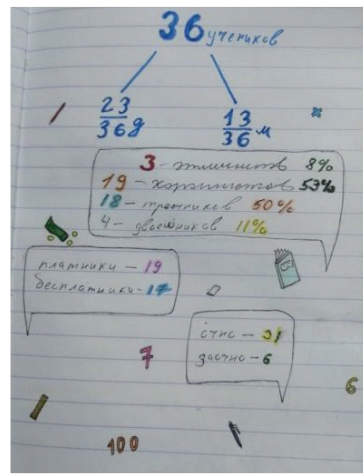 36 учеников
23/36 д
13/36 м
3 - отличников 8%
19 - хорошистов 53%
18 - троечников 50%
4 - двоечников 11%
платники - 19
бесплатники - 17
очно - 31
заочно - 6
7
6
100